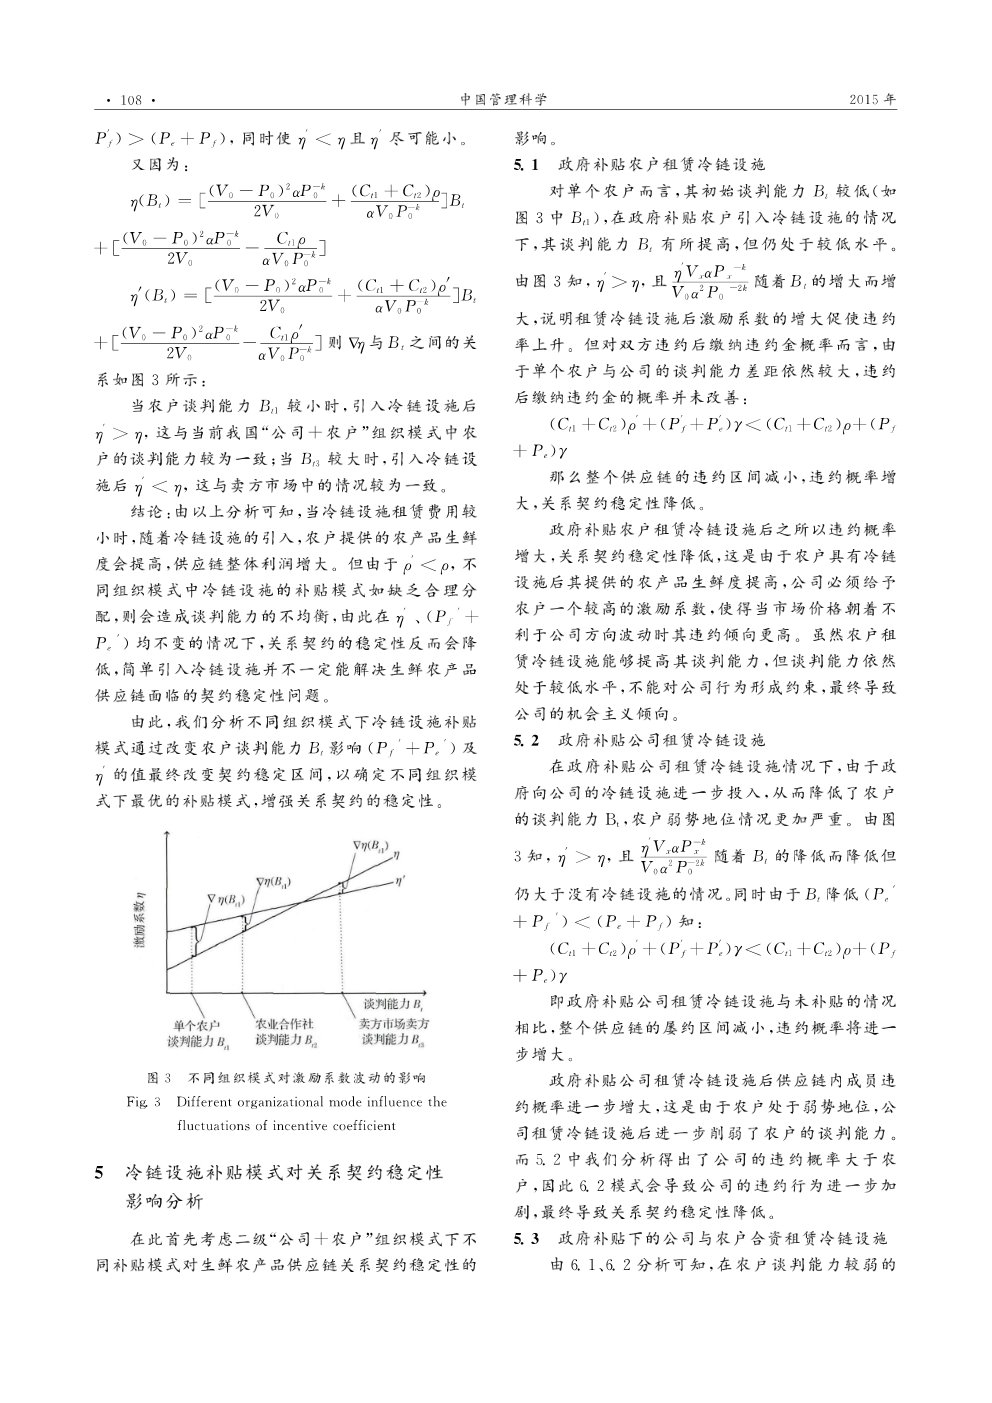 · 108 ·
中国管理科学
2015 年
P′f)>(Pe+Pf), 同时使 η′<η且η′尽可能小。
又因为:
η(Bt)=[(V0-P0)²αP0^-k/2V0+(Ct1+Ct2)ρ/αV0P0^-k]Bt
+[(V0-P0)²αP0^-k/2V0-Ct1ρ/αV0P0^-k]
η′(Bt)=[(V0-P0)²αP0^-k/2V0+(Ct1+Ct2)ρ′/αV0P0^-k]Bt
+[(V0-P0)²αP0^-k/2V0-Ct1ρ′/αV0P0^-k] 则∇η与Bt之间的关
系如图 3 所示:
当农户谈判能力 Bt1 较小时,引入冷链设施后
η′>η, 这与当前我国“公司+农户”组织模式中农
户的谈判能力较为一致;当 Bt3 较大时,引入冷链设
施后 η′<η, 这与卖方市场中的情况较为一致。
结论:由以上分析可知,当冷链设施租赁费用较
小时,随着冷链设施的引入,农户提供的农产品生鲜
度会提高,供应链整体利润增大。但由于ρ′<ρ, 不
同组织模式中冷链设施的补贴模式如缺乏合理分
配,则会造成谈判能力的不均衡,由此在 η′、(Pf′+
Pe′)均不变的情况下,关系契约的稳定性反而会降
低,简单引入冷链设施并不一定能解决生鲜农产品
供应链面临的契约稳定性问题。
由此,我们分析不同组织模式下冷链设施补贴
模式通过改变农户谈判能力 Bt 影响(Pf′+Pe′)及
η′的值最终改变契约稳定区间,以确定不同组织模
式下最优的补贴模式,增强关系契约的稳定性。
激励系数 η
∇η(Bt1)
∇η(Bt1)
∇η(Bt1)
η
η′
谈判能力 Bt
单个农户
谈判能力 Bt1
农业合作社
谈判能力 Bt2
卖方市场卖方
谈判能力 Bt3
图 3 不同组织模式对激励系数波动的影响
Fig. 3 Different organizational mode influence the
fluctuations of incentive coefficient
5 冷链设施补贴模式对关系契约稳定性
影响分析
在此首先考虑二级“公司+农户”组织模式下不
同补贴模式对生鲜农产品供应链关系契约稳定性的
影响。
5.1 政府补贴农户租赁冷链设施
对单个农户而言,其初始谈判能力 Bt 较低(如
图 3 中 Bt1),在政府补贴农户引入冷链设施的情况
下,其谈判能力 Bt 有所提高,但仍处于较低水平。
由图 3 知, η′>η, 且 η′VxαPx^-k/V0α²P0^-2k 随着 Bt 的增大而增
大,说明租赁冷链设施后激励系数的增大促使违约
率上升。但对双方违约后缴纳违约金概率而言,由
于单个农户与公司的谈判能力差距依然较大,违约
后缴纳违约金的概率并未改善:
(Ct1+Ct2)ρ′+(P′f+P′e)γ<(Ct1+Ct2)ρ+(Pf
+Pe)γ
那么整个供应链的违约区间减小,违约概率增
大,关系契约稳定性降低。
政府补贴农户租赁冷链设施后之所以违约概率
增大,关系契约稳定性降低,这是由于农户具有冷链
设施后其提供的农产品生鲜度提高,公司必须给予
农户一个较高的激励系数,使得当市场价格朝着不
利于公司方向波动时其违约倾向更高。虽然农户租
赁冷链设施能够提高其谈判能力,但谈判能力依然
处于较低水平,不能对公司行为形成约束,最终导致
公司的机会主义倾向。
5.2 政府补贴公司租赁冷链设施
在政府补贴公司租赁冷链设施情况下,由于政
府向公司的冷链设施进一步投入,从而降低了农户
的谈判能力 Bt,农户弱势地位情况更加严重。由图
3 知, η′>η, 且 η′VxαPx^-k/V0α²P0^-2k 随着 Bt 的降低而降低但
仍大于没有冷链设施的情况。同时由于Bt降低(Pe′
+Pf′)<(Pe+Pf)知:
(Ct1+Ct2)ρ′+(P′f+P′e)γ<(Ct1+Ct2)ρ+(Pf
+Pe)γ
即政府补贴公司租赁冷链设施与未补贴的情况
相比,整个供应链的屡约区间减小,违约概率将进一
步增大。
政府补贴公司租赁冷链设施后供应链内成员违
约概率进一步增大,这是由于农户处于弱势地位,公
司租赁冷链设施后进一步削弱了农户的谈判能力。
而 5.2 中我们分析得出了公司的违约概率大于农
户,因此 6.2 模式会导致公司的违约行为进一步加
剧,最终导致关系契约稳定性降低。
5.3 政府补贴下的公司与农户合资租赁冷链设施
由 6.1、6.2 分析可知,在农户谈判能力较弱的